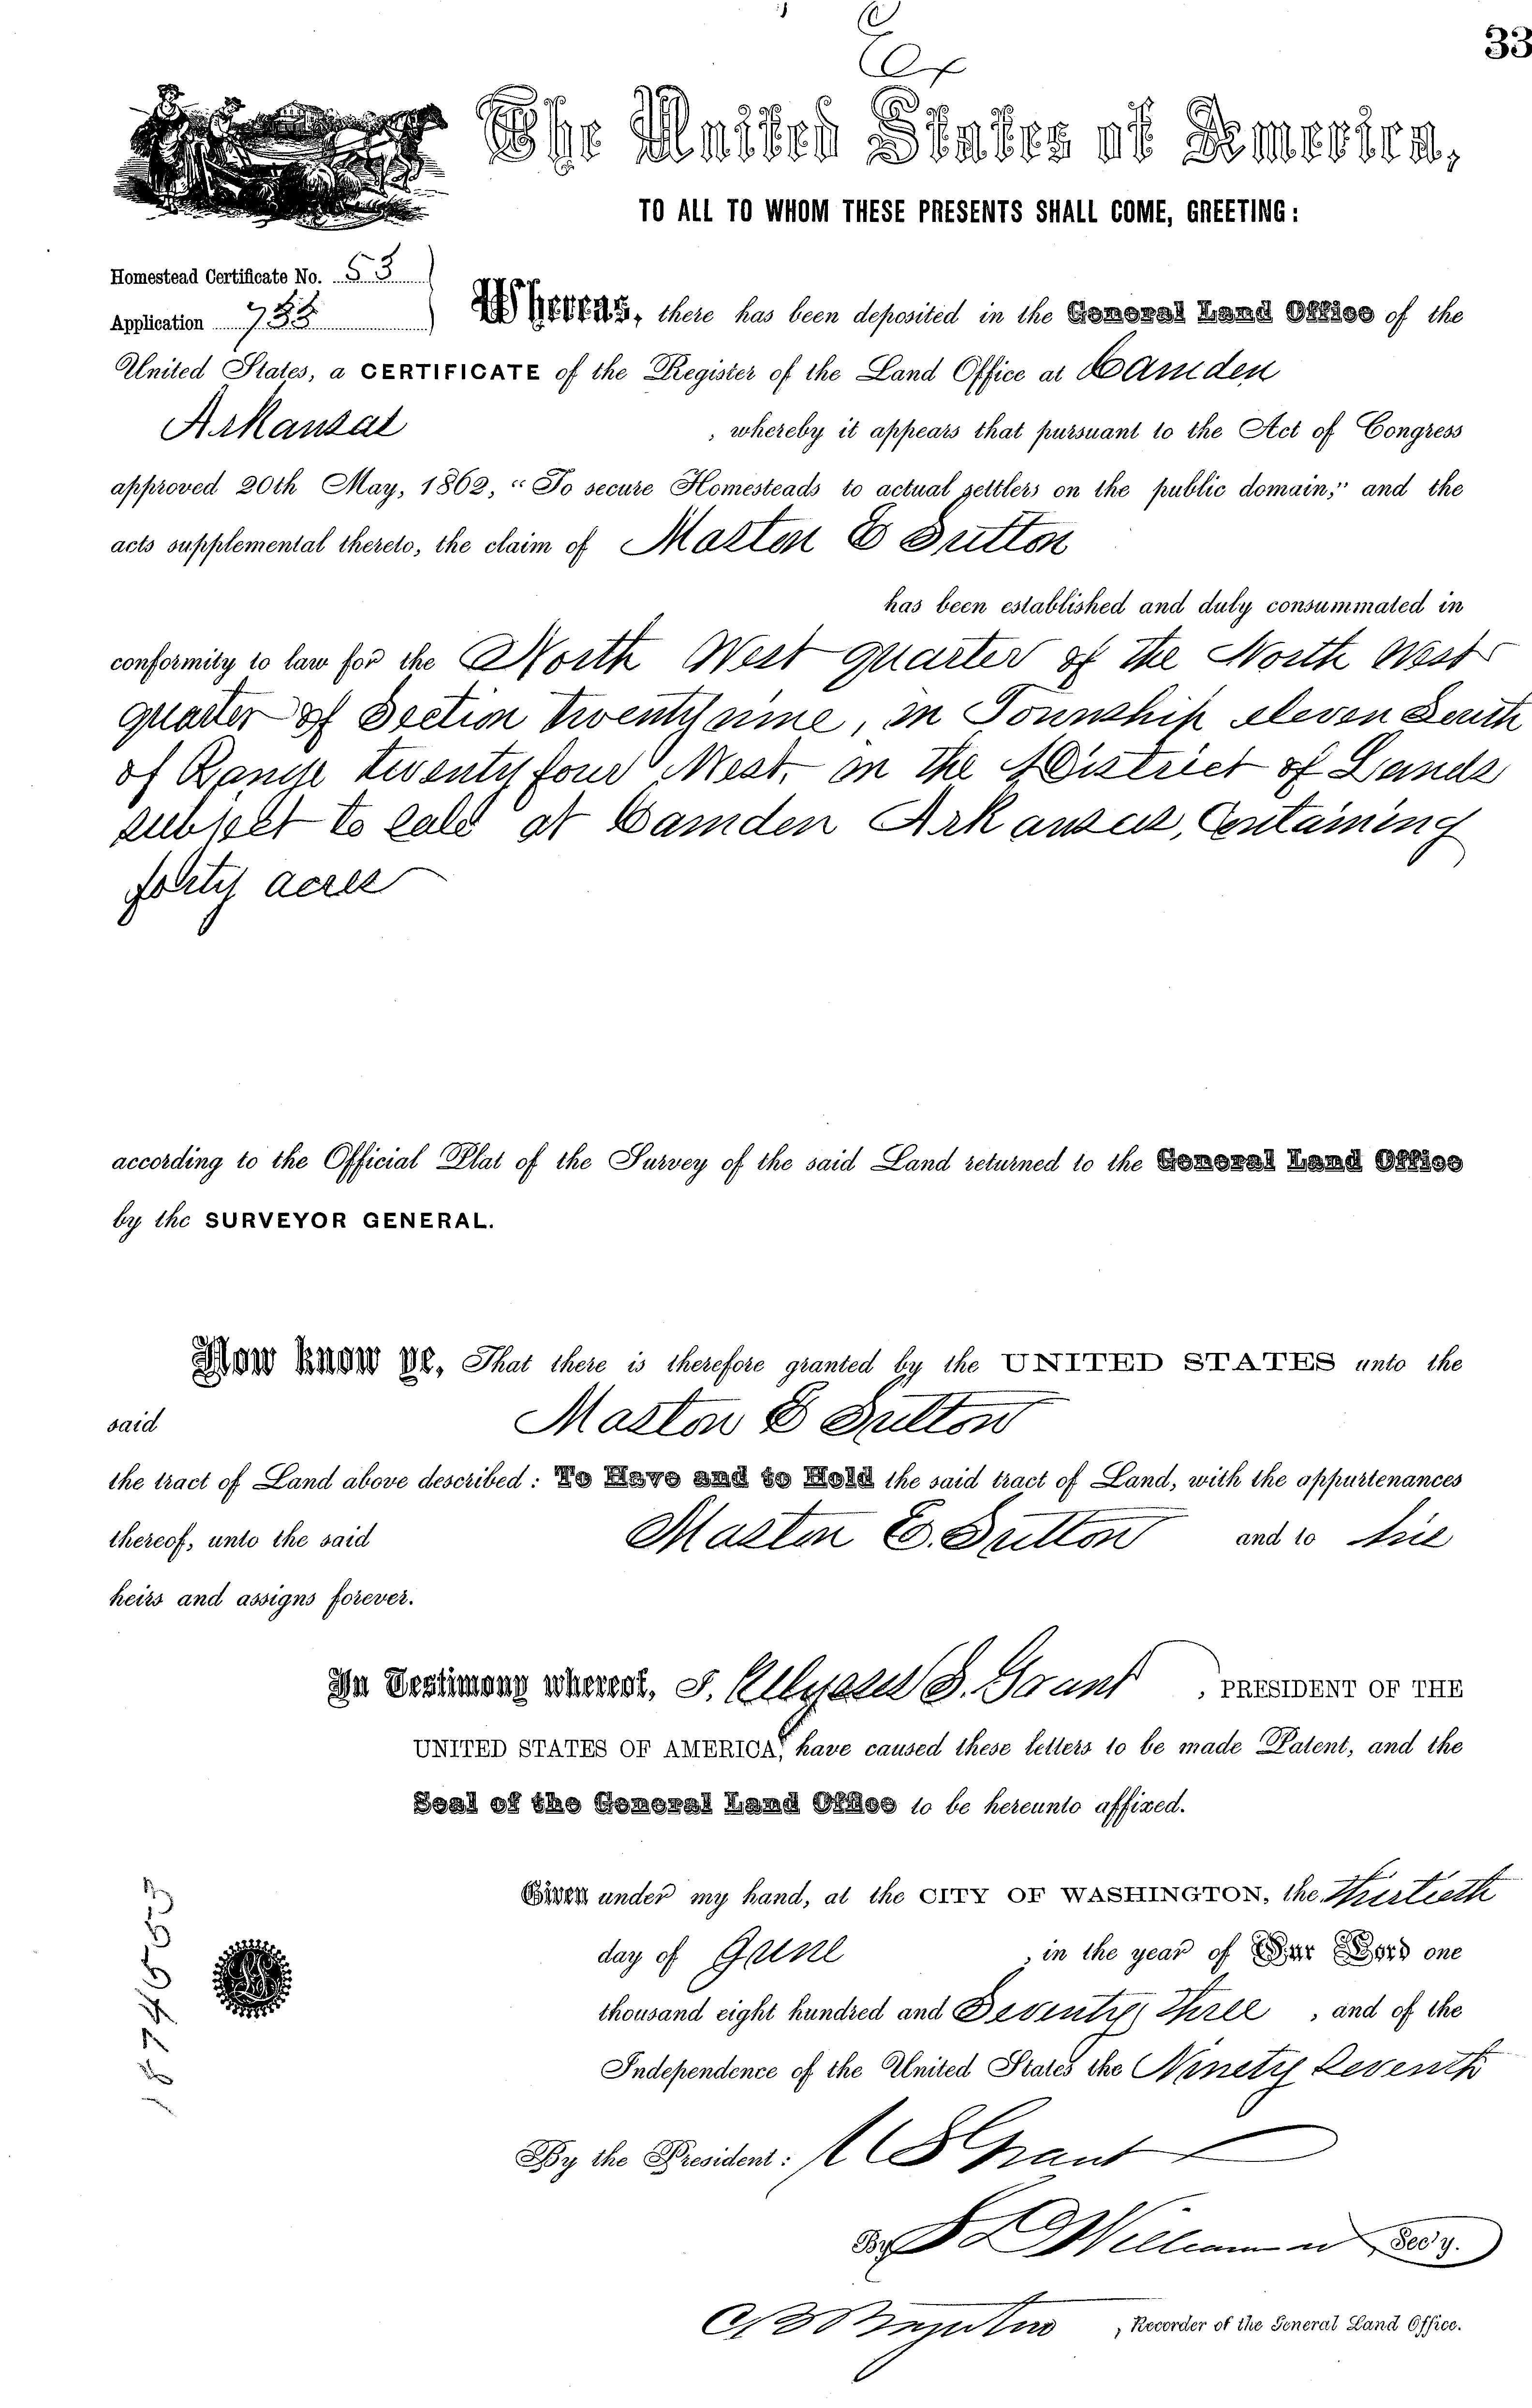 33
Ex
The United States of America,
TO ALL TO WHOM THESE PRESENTS SHALL COME, GREETING:
Homestead Certificate No. 53
Application 788
Whereas, there has been deposited in the General Land Office of the
United States, a CERTIFICATE of the Register of the Land Office at Camden
Arkansas , whereby it appears that pursuant to the Act of Congress
approved 20th May, 1862, "To secure Homesteads to actual settlers on the public domain," and the
acts supplemental thereto, the claim of Maston E Sutton
has been established and duly consummated in
conformity to law for the North West quarter of the North West
quarter of Section twenty nine, in Township eleven South
of Range twenty four West, in the District of Lands
subject to sale at Camden Arkansas, Containing
forty acres
according to the Official Plat of the Survey of the said Land returned to the General Land Office
by the SURVEYOR GENERAL.
Now know ye, That there is therefore granted by the UNITED STATES unto the
said Maston E Sutton
the tract of Land above described: To Have and to Hold the said tract of Land, with the appurtenances
thereof, unto the said Maston E. Sutton and to his
heirs and assigns forever.
In Testimony whereof, I, Ulysses S. Grant , PRESIDENT OF THE
UNITED STATES OF AMERICA, have caused these letters to be made Patent, and the
Seal of the General Land Office to be hereunto affixed.
Given under my hand, at the CITY OF WASHINGTON, the Thirtieth
day of June , in the year of Our Lord one
thousand eight hundred and Seventy Three , and of the
Independence of the United States the Ninety Seventh
By the President: U S Grant
By S D Williamson, Sec'y.
, Recorder of the General Land Office.